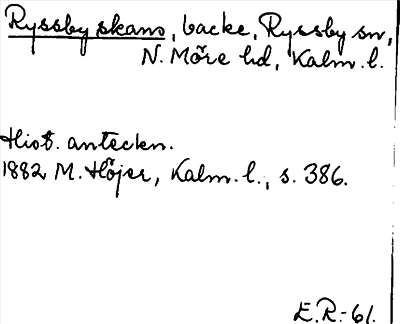 Ryssby skans, backe, Ryssby sn,
N. Möre hd, Kalm. l.
Hist. anteckn.
1882 M. Höjer, Kalm. l., s. 386.
E.R.-61.